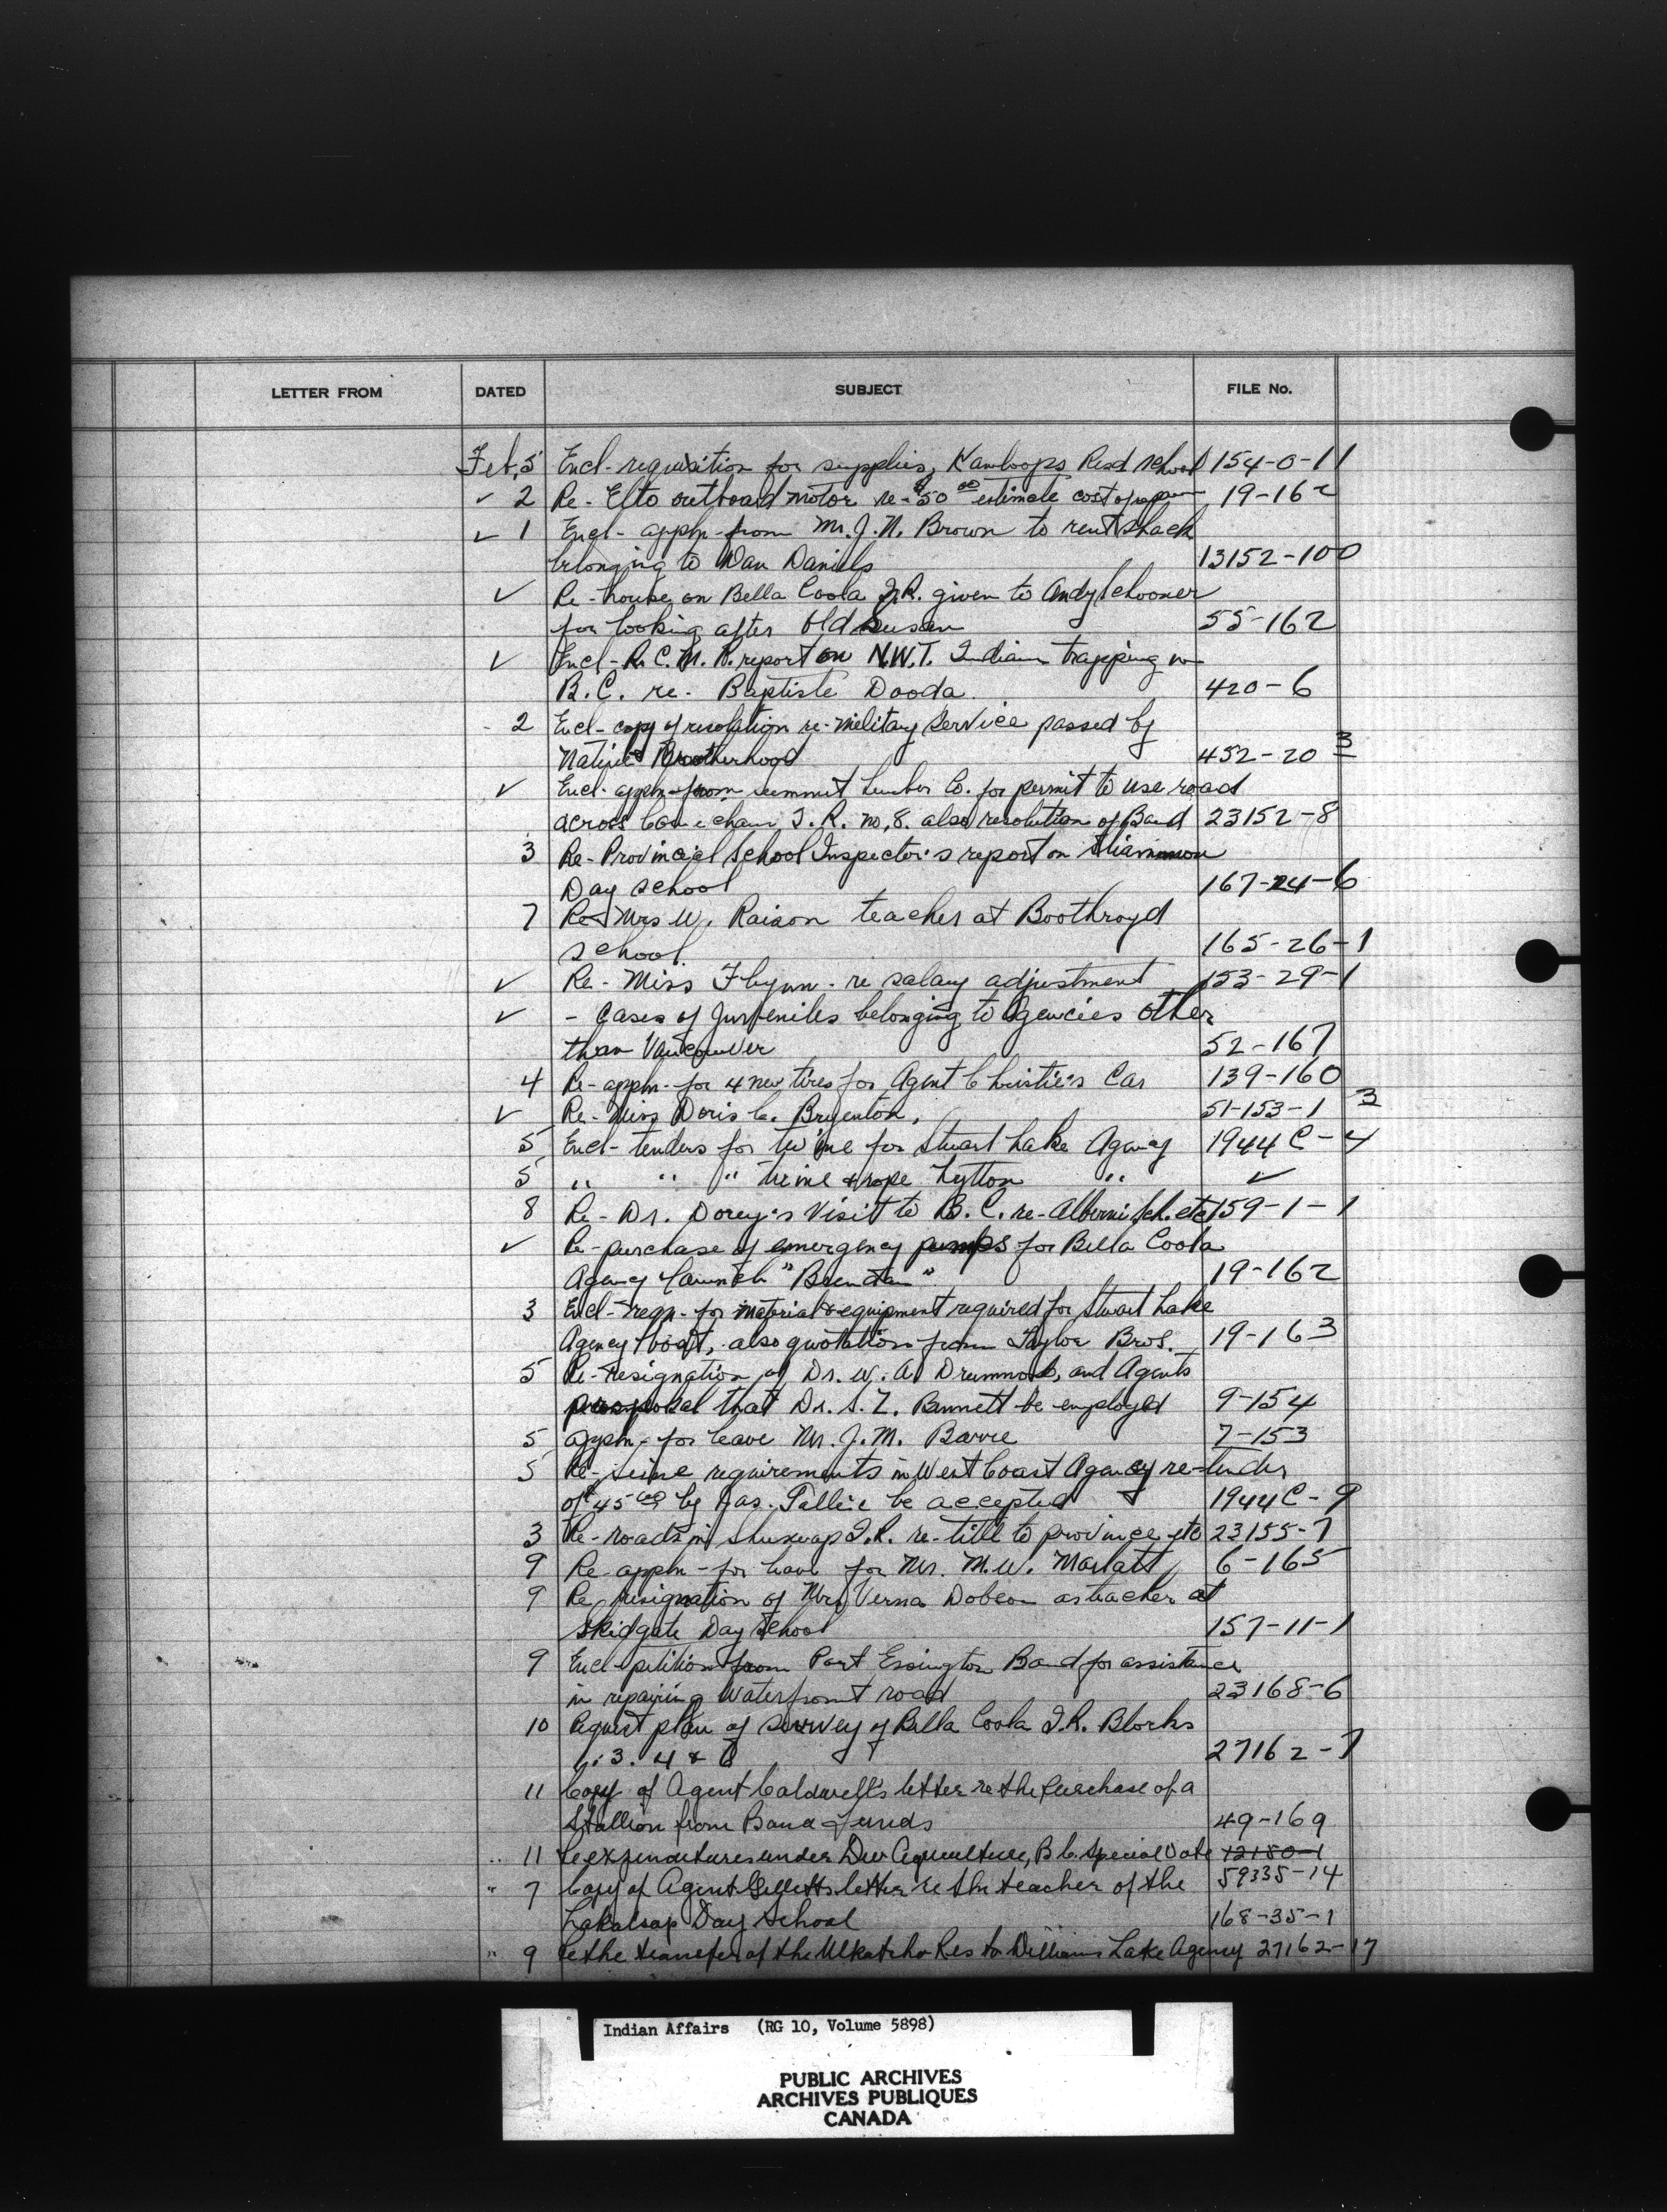 LETTER FROM DATED SUBJECT FILE No.
Feb. 5 Encl- requisition for supplies, Kamloops Resd school 154-0-11
✓ 2 Re- Elto outboard motor re- $50 00 estimate cost of 19-162
✓ 1 Encl- appln- from Mr. J. N. Brown to rent shack
belonging to Dan Daniels 13152-100
✓ Re- house on Bella Coola I.R. given to Andy Schooner
for looking after Old Susan 55-162
✓ Encl- R.C.M.P. report on N.W.T. Indian trapping in
B.C. re- Baptiste Dooda. 420-6
2 Encl- copy of resolution re- Military Service passed by
Native Brotherhood 452-20 3
✓ Encl- appln- from summit Lumber Co. for permit to use road
across Cowichan I.R. no. 8. also resolution of Band 23152-8
3 Re- Provincial School Inspector's report on Sliammon
Day school 167-24-6
7 Re- Mrs W. Raison teacher at Boothroyd
school. 165-26-1
✓ Re- Miss Flynn- re salary adjustment 153-29-1
✓ - Cases of Juveniles belonging to Agencies other
than Vancouver 52-167
4 Re- appln- for 4 new tires for Agent Christie's Car 139-160
✓ Re- Miss Doris C. Bryenton, 51-153-1 3
5 Encl- tenders for twine for Stuart Lake Agency 1944 C-4
5 " " " twine & rope Lytton " ✓
8 Re- Dr. Dorey's Visit to B.C. re- Alberni Sch. etc 159-1-1
✓ Re- purchase of emergency pumps for Bella Coola
Agency launch " " 19-162
3 Encl- reqn- for material & equipment required for Stuart Lake
Agency boat, also quotation from Taylor Bros. 19-163
5 Re- resignation of Dr. W. A. Drummond, and Agents
proposal that Dr. S. Z. Bennett be employed 9-154
5 appln- for leave Mr. J. M. Barre 7-153
5 Re- Seine requirements in West Coast Agency re- tender
of $45 00 by Jas. be accepted 1944 C-9
3 Re- roads in Shuswap I.R. re- title to province etc 23155-7
9 Re- appln- for leave for Mr. M. W. Marlatt 6-165
9 Re resignation of Mrs Verna Dobson as teacher at
Skidgate Day School 157-11-1
9 Encl- petition from Port Essington Band for assistance
in repairing Waterfront road 23168-6
10 Request plan of survey of Bella Coola I.R. Blocks
1. 3. 4 & 6 27162-7
11 Copy of Agent Caldwell's letter re the purchase of a
Stallion from Band Funds 49-169
.. 11 Re expenditures under Dev Agriculture, B.C. Special Vote 12180-1
59335-14
" 7 Copy of Agent Gillett's letter re the teacher of the
Lakalsap Day School 168-35-1
" 9 Re the transfer of the Ulkatcho Res to Williams Lake Agency 27162-17
Indian Affairs (RG 10, Volume 5898)
PUBLIC ARCHIVES
ARCHIVES PUBLIQUES
CANADA